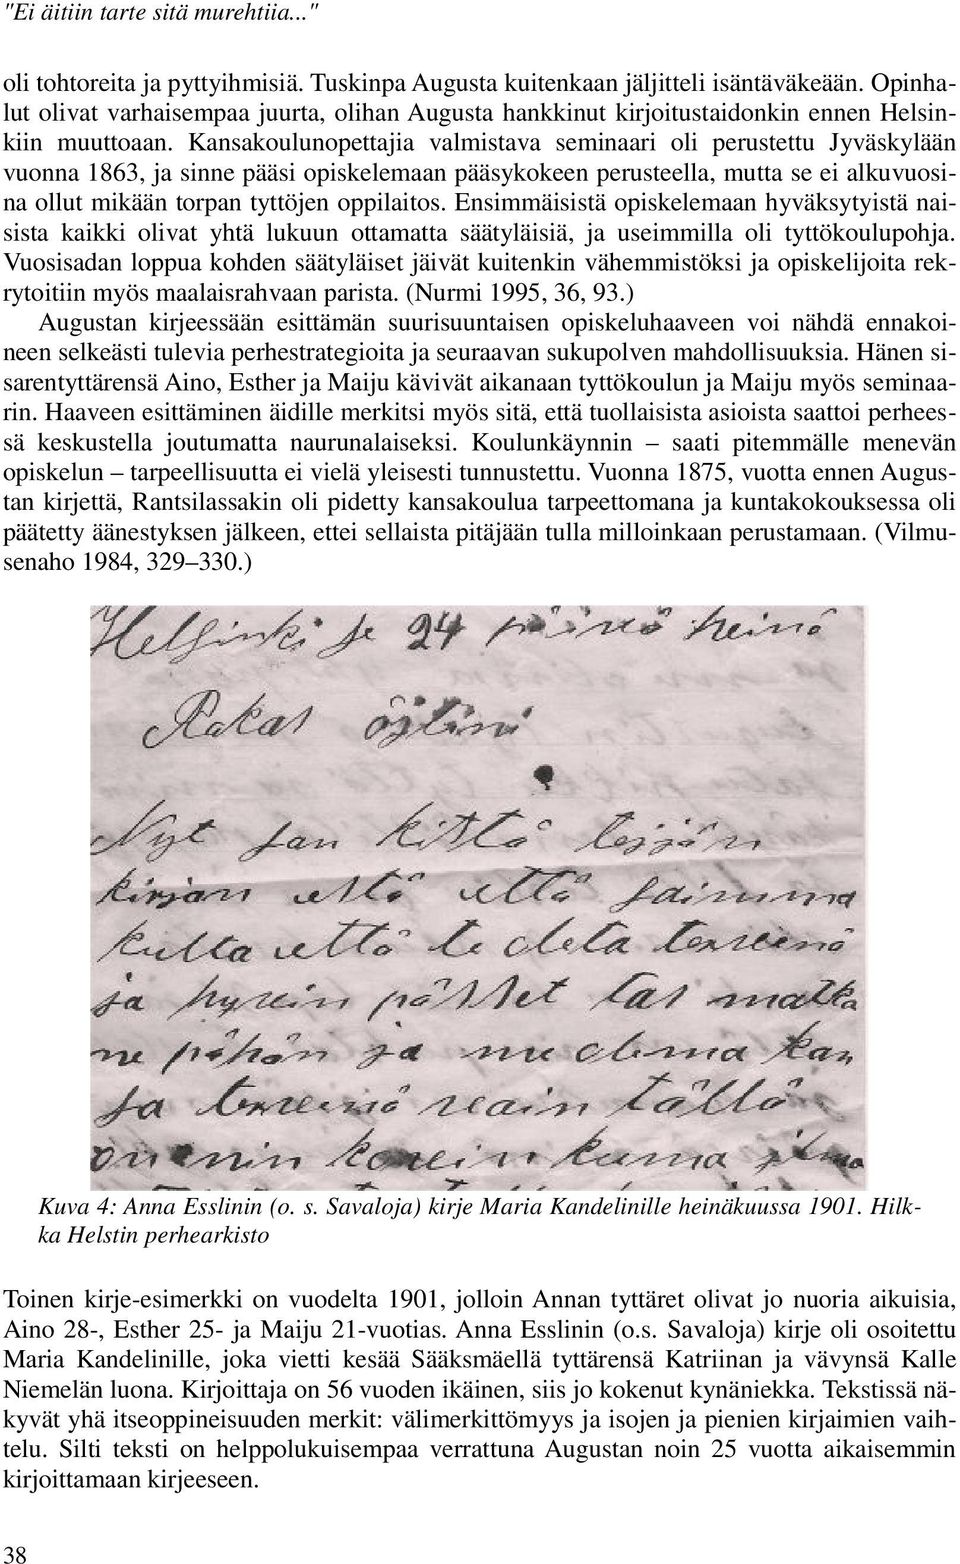 "Ei äitiin tarte sitä murehtiia..."
oli tohtoreita ja pyttyihmisiä. Tuskinpa Augusta kuitenkaan jäljitteli isäntäväkeään. Opinha-
lut olivat varhaisempaa juurta, olihan Augusta hankkinut kirjoitustaidonkin ennen Helsin-
kiin muuttoaan. Kansakoulunopettajia valmistava seminaari oli perustettu Jyväskylään
vuonna 1863, ja sinne pääsi opiskelemaan pääsykokeen perusteella, mutta se ei alkuvuosi-
na ollut mikään torpan tyttöjen oppilaitos. Ensimmäisistä opiskelemaan hyväksytyistä nai-
sista kaikki olivat yhtä lukuun ottamatta säätyläisiä, ja useimmilla oli tyttökoulupohja.
Vuosisadan loppua kohden säätyläiset jäivät kuitenkin vähemmistöksi ja opiskelijoita rek-
rytoitiin myös maalaisrahvaan parista. (Nurmi 1995, 36, 93.)
Augustan kirjeessään esittämän suurisuuntaisen opiskeluhaaveen voi nähdä ennakoi-
neen selkeästi tulevia perhestrategioita ja seuraavan sukupolven mahdollisuuksia. Hänen si-
sarentyttärensä Aino, Esther ja Maiju kävivät aikanaan tyttökoulun ja Maiju myös seminaa-
rin. Haaveen esittäminen äidille merkitsi myös sitä, että tuollaisista asioista saattoi perhees-
sä keskustella joutumatta naurunalaiseksi. Koulunkäynnin – saati pitemmälle menevän
opiskelun – tarpeellisuutta ei vielä yleisesti tunnustettu. Vuonna 1875, vuotta ennen Augus-
tan kirjettä, Rantsilassakin oli pidetty kansakoulua tarpeettomana ja kuntakokouksessa oli
päätetty äänestyksen jälkeen, ettei sellaista pitäjään tulla milloinkaan perustamaan. (Vilmu-
senaho 1984, 329–330.)
Helsinki se 24 päivä heinä
Rakas
Nyt san kittä teijän
kirjan estä että saimma
kulla että te oleta terveinä
ja hyvein pässet tas matka
ne pähän ja me olema kan
sa terveinä vain tällä
on nin korein kuma ilma
Kuva 4: Anna Esslinin (o. s. Savaloja) kirje Maria Kandelinille heinäkuussa 1901. Hilk-
ka Helstin perhearkisto
Toinen kirje-esimerkki on vuodelta 1901, jolloin Annan tyttäret olivat jo nuoria aikuisia,
Aino 28-, Esther 25- ja Maiju 21-vuotias. Anna Esslinin (o.s. Savaloja) kirje oli osoitettu
Maria Kandelinille, joka vietti kesää Sääksmäellä tyttärensä Katriinan ja vävynsä Kalle
Niemelän luona. Kirjoittaja on 56 vuoden ikäinen, siis jo kokenut kynäniekka. Tekstissä nä-
kyvät yhä itseoppineisuuden merkit: välimerkittömyys ja isojen ja pienien kirjaimien vaih-
telu. Silti teksti on helppolukuisempaa verrattuna Augustan noin 25 vuotta aikaisemmin
kirjoittamaan kirjeeseen.
38